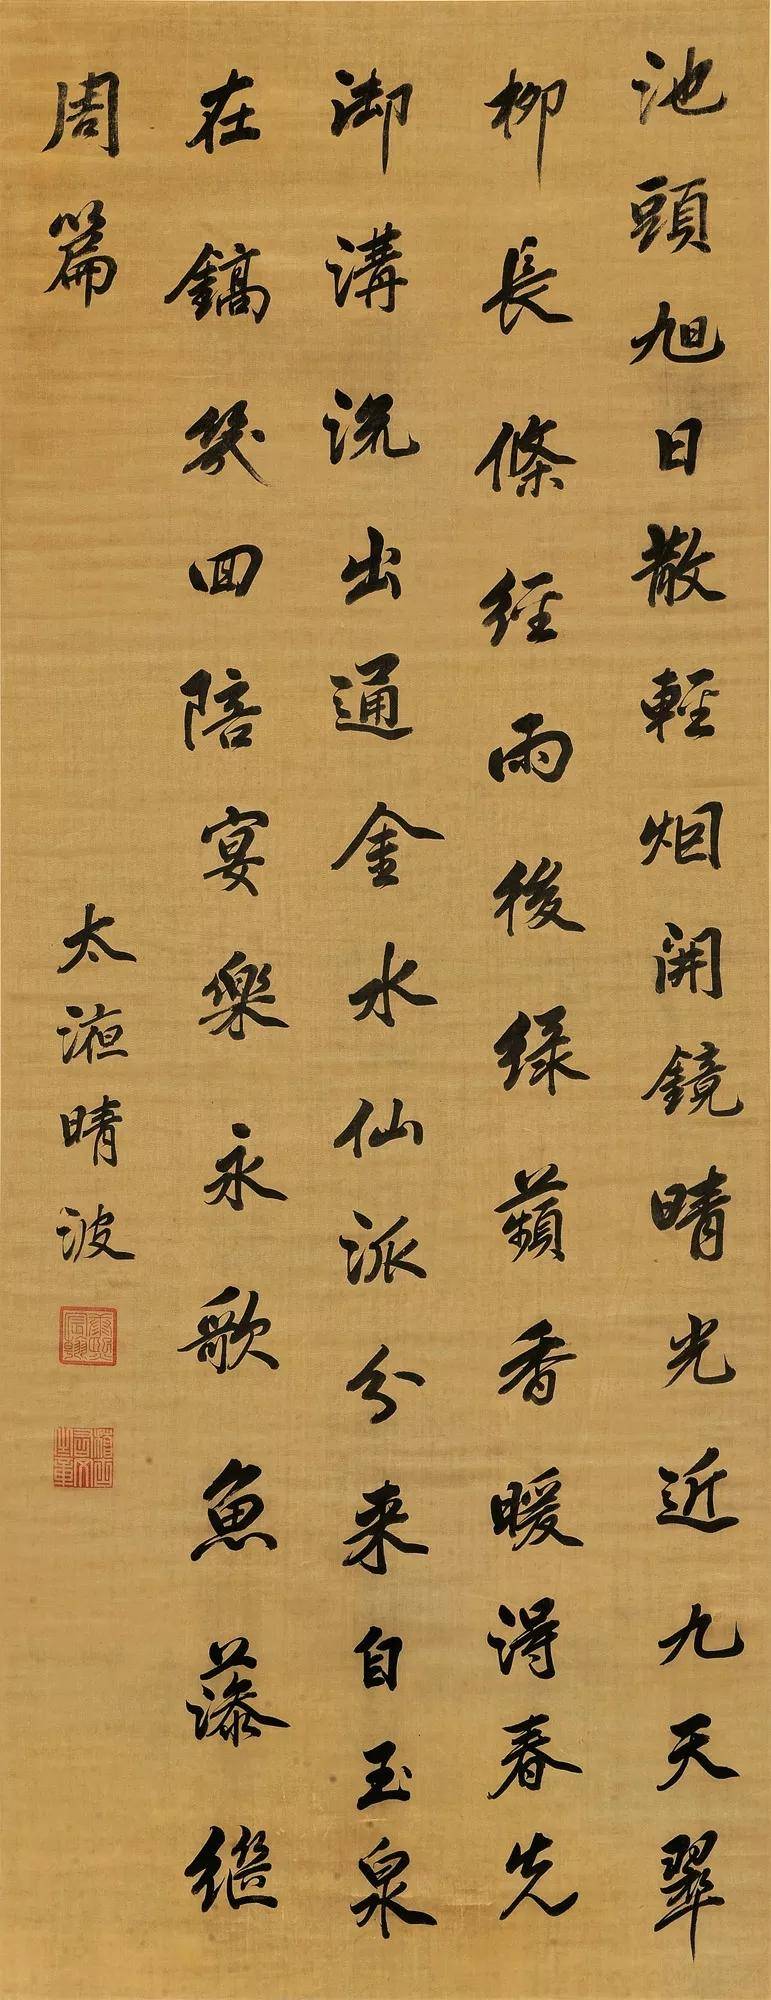 池頭旭日散輕烟開鏡晴光近九天翠
柳長條經雨後緑蘋香暖得春先
御溝流出通金水仙派分来自玉泉
在鎬幾回陪宴樂永歌魚藻繼
周篇
太液晴波